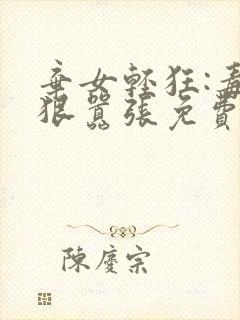 棄女輕狂:毒
狠囂張免費
陳慶宗